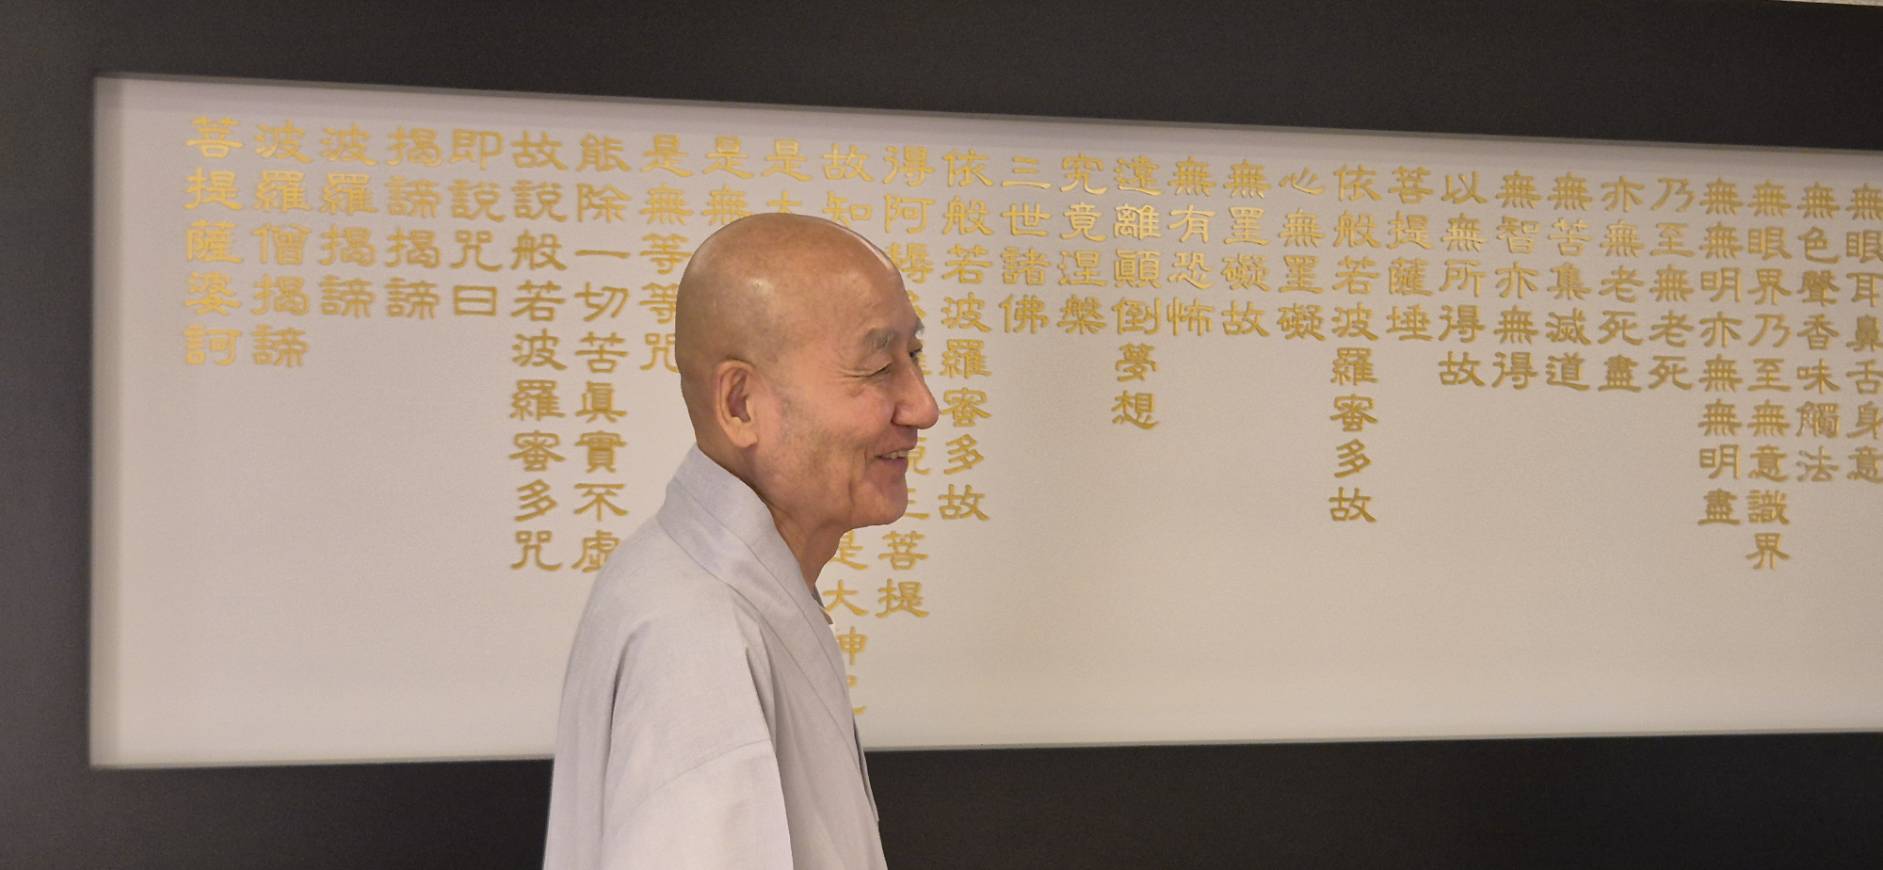 無眼耳鼻舌身意
無色聲香味觸法
無眼界乃至無意識界
無無明亦無無明盡
乃至無老死
亦無老死盡
無苦集滅道
無智亦無得
以無所得故
菩提薩埵
依般若波羅蜜多故
心無罣礙
無罣礙故
無有恐怖
遠離顚倒夢想
究竟涅槃
三世諸佛
依般若波羅蜜多故
得阿耨三菩提
故知是大神
是大
是無
是無等等咒
能除一切苦眞實不虛
故說般若波羅蜜多咒
即說咒曰
揭諦揭諦
波羅揭諦
波羅僧揭諦
菩提薩婆訶